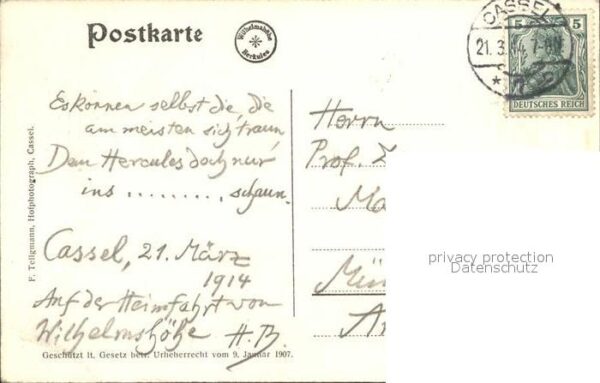 Postkarte
Wilhelmshöhe
Herkules
CASSEL
21.3.14.7-8N
5 5
DEUTSCHES REICH
Es können selbst die, die
am meisten sich traun,
Dem Hercules doch nur
ins ......... schaun.
Cassel, 21. März
1914
Auf der Heimfahrt von
Wilhelmshöhe H.B.
Herrn
Prof.
Ma
Mün
F. Tellgmann, Hofphotograph, Cassel.
Geschützt lt. Gesetz betr. Urheberrecht vom 9. Januar 1907.
privacy protection
Datenschutz